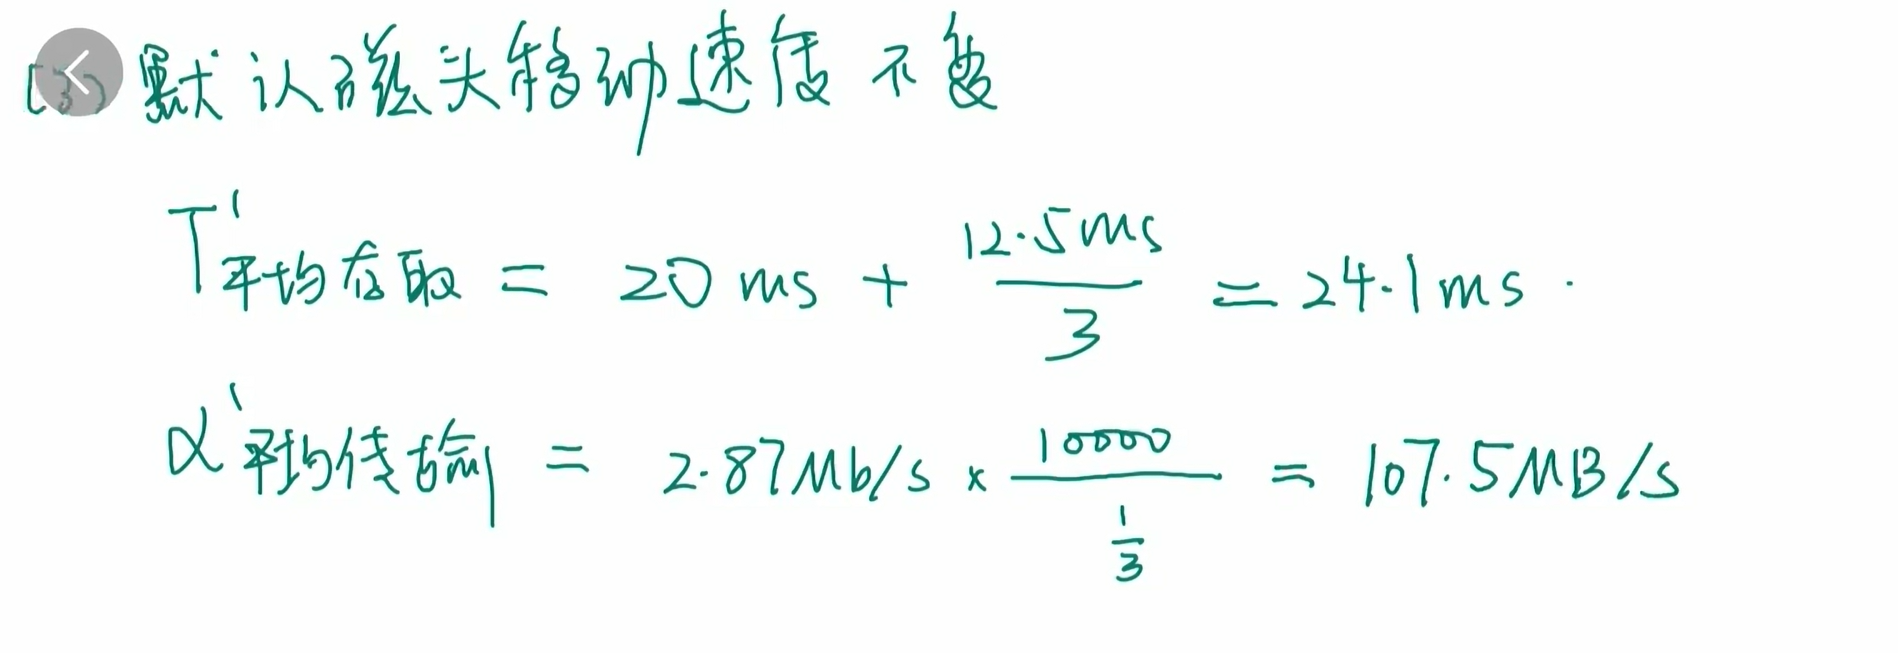 (3) 默认磁头移动速度不变
T'平均存取 = 20 ms + 12.5ms / 3 = 24.1ms.
α'平均传输 = 2.87Mb/s × 10000 / 1/3 = 107.5MB/s